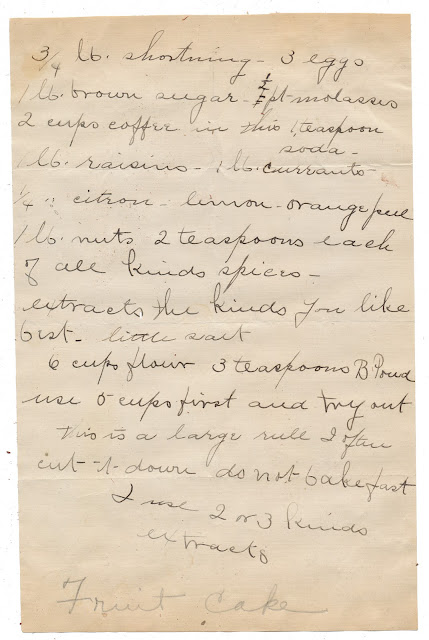 3/4 lb. shortning - 3 eggs
1 lb. brown sugar - 1/2 pt molasses
2 cups coffee in this 1 teaspoon
soda -
1 lb. raisins - 1 lb. currants -
1/4 " citron - limon - orange peel
1 lb. nuts 2 teaspoons each
of all kinds spices -
extracts the kinds you like
best - little salt
6 cups flour 3 teaspoons B Powd
use 5 cups first and try out
this is a large rule I often
cut it down do not bake fast
I use 2 or 3 kinds
extracts
Fruit Cake